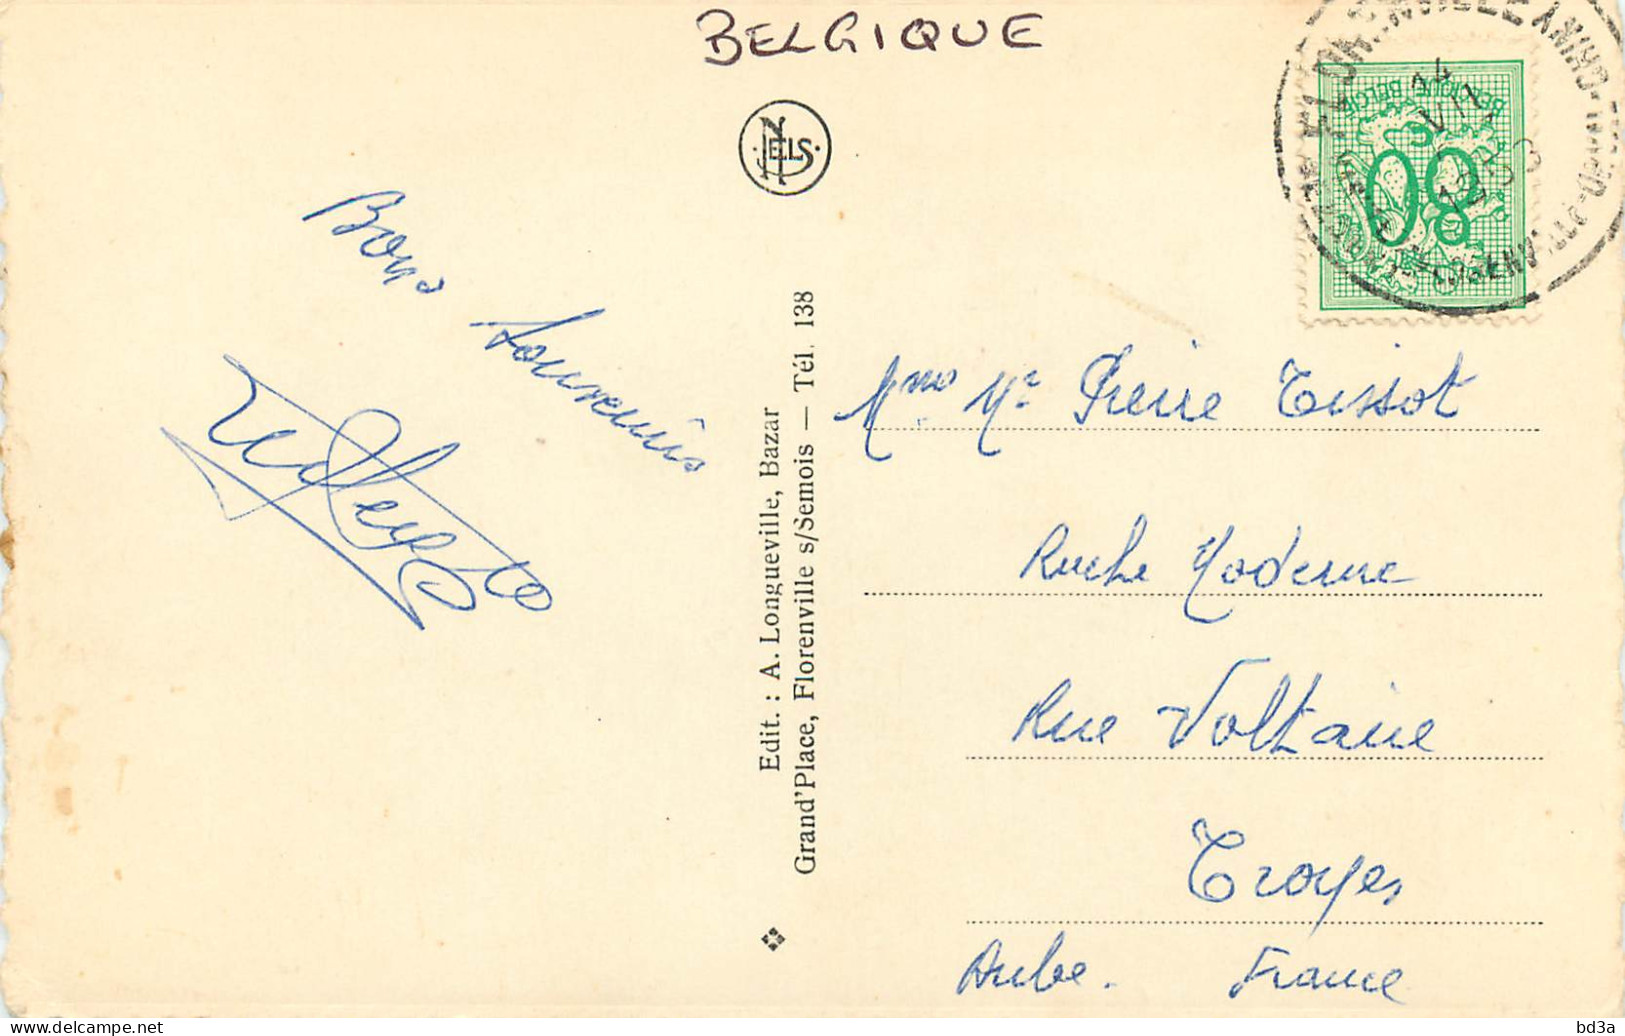 BELGIQUE
NELS
Bons
souvenirs
Edit. : A. Longueville, Bazar
Grand'Place, Florenville s/Semois — Tél. 138
BELGIQUE BELGIE
80
14
VII
Mme Mr Pierre Tissot
Ruche Moderne
Rue Voltaire
Troyes
Aube. France
bd3a